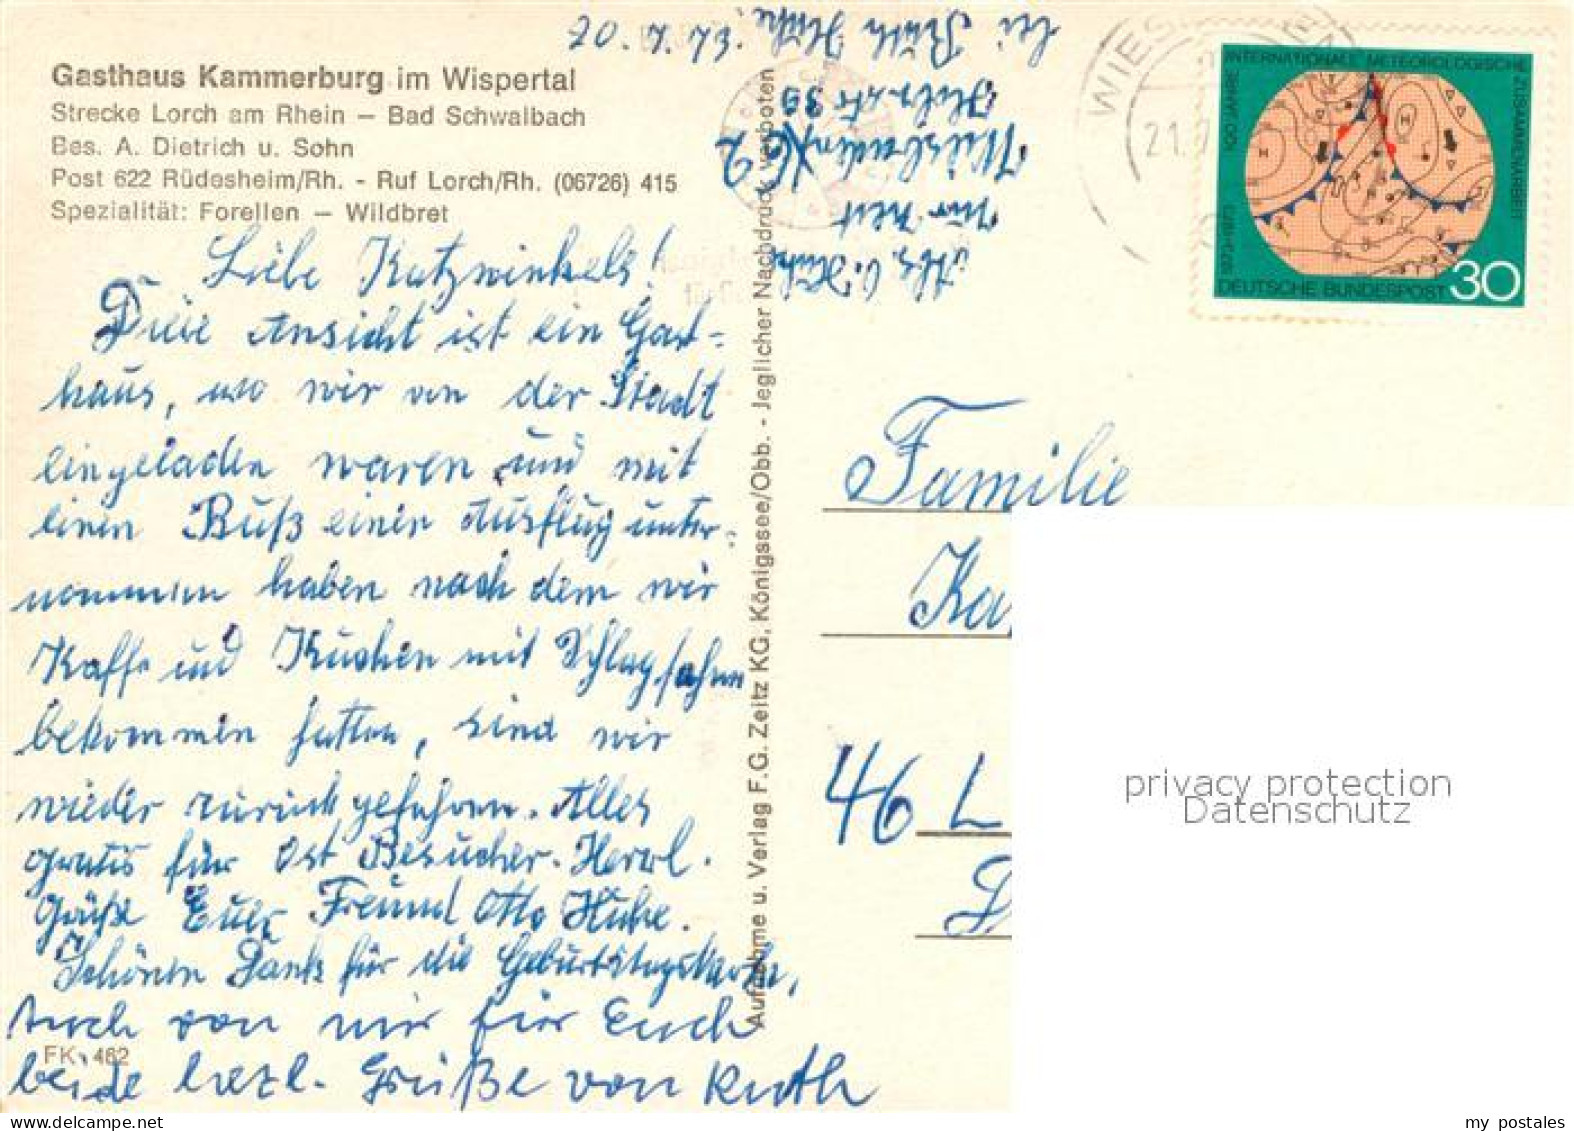 Gasthaus Kammerburg im Wispertal
Strecke Lorch am Rhein – Bad Schwalbach
Bes. A. Dietrich u. Sohn
Post 622 Rüdesheim/Rh. - Ruf Lorch/Rh. (06726) 415
Spezialität: Forellen – Wildbret
Liebe Katzwinkels!
Diese Ansicht ist ein Gast-
haus, wo wir von der Stadt
eingeladen waren und mit
einen Buß einen Ausflug unter-
nommen haben nach dem wir
Kaffe und Kuchen mit Schlagsahne
bekommen hatten, sind wir
wieder zurück gefahren. Alles
gratis für Ost Besucher. Herzl.
Grüße Euer Freund Otto Huhe.
Schönen Dank für die Geburtstagskarte,
Auch von mir für Euch
beide herzl. Grüße von Ruth
FK 462
Aufnahme u. Verlag F.G. Zeitz KG, Königssee/Obb. - Jeglicher Nachdruck verboten
Abs. O. Huhe
zur Zeit
Wiesbaden 62
39
bei Ruth Huhe.
20.7.73.
WIES
21.7
INTERNATIONALE METEOROLOGISCHE ZUSAMMENARBEIT
100 JAHRE
1873-1973
DEUTSCHE BUNDESPOST 30
Familie
Ka
46 L
D
privacy protection
Datenschutz
my postales